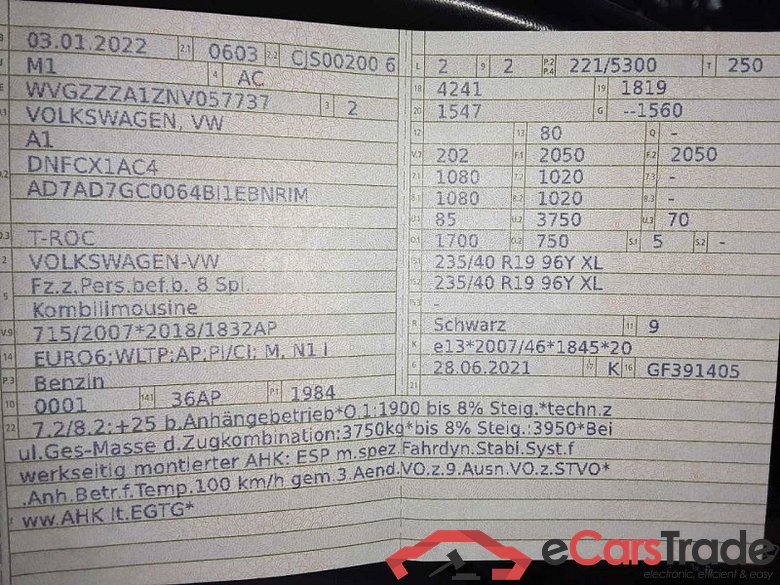 B 03.01.2022 2.1 0603 2.2 CJS00200 6
J M1 4 AC
E WVGZZZA1ZNV057737 3 2
D.1 VOLKSWAGEN, VW
A1
D.2 DNFCX1AC4
AD7AD7GC0064BI1EBNRIM
D.3 T-ROC
2 VOLKSWAGEN-VW
5 Fz.z.Pers.bef.b. 8 Spl.
Kombilimousine
V.9 715/2007*2018/1832AP
14 EURO6;WLTP;AP;PI/CI; M, N1 I
P.3 Benzin
10 0001 14.1 36AP P.1 1984
L 2 9 2 P.2 P.4 221/5300 T 250
18 4241 19 1819
20 1547 G --1560
12 13 80 Q -
V.7 202 F.1 2050 F.2 2050
7.1 1080 7.2 1020 7.3 -
8.1 1080 8.2 1020 8.3 -
U.1 85 U.2 3750 U.3 70
O.1 1700 O.2 750 S.1 5 S.2 -
15.1 235/40 R19 96Y XL
15.2 235/40 R19 96Y XL
15.3 -
R Schwarz 11 9
K e13*2007/46*1845*20
6 28.06.2021 17 K 16 GF391405
21
22 7.2/8.2:+25 b.Anhängebetrieb*O.1:1900 bis 8% Steig.*techn.z
ul.Ges-Masse d.Zugkombination:3750kg*bis 8% Steig.:3950*Bei
werkseitig montierter AHK: ESP m.spez.Fahrdyn.Stabi.Syst.f
.Anh.Betr.f.Temp.100 km/h gem.3.Aend.VO.z.9.Ausn.VO.z.STVO*
ww.AHK lt.EGTG*
eCarsTrade
electronic, efficient & easy